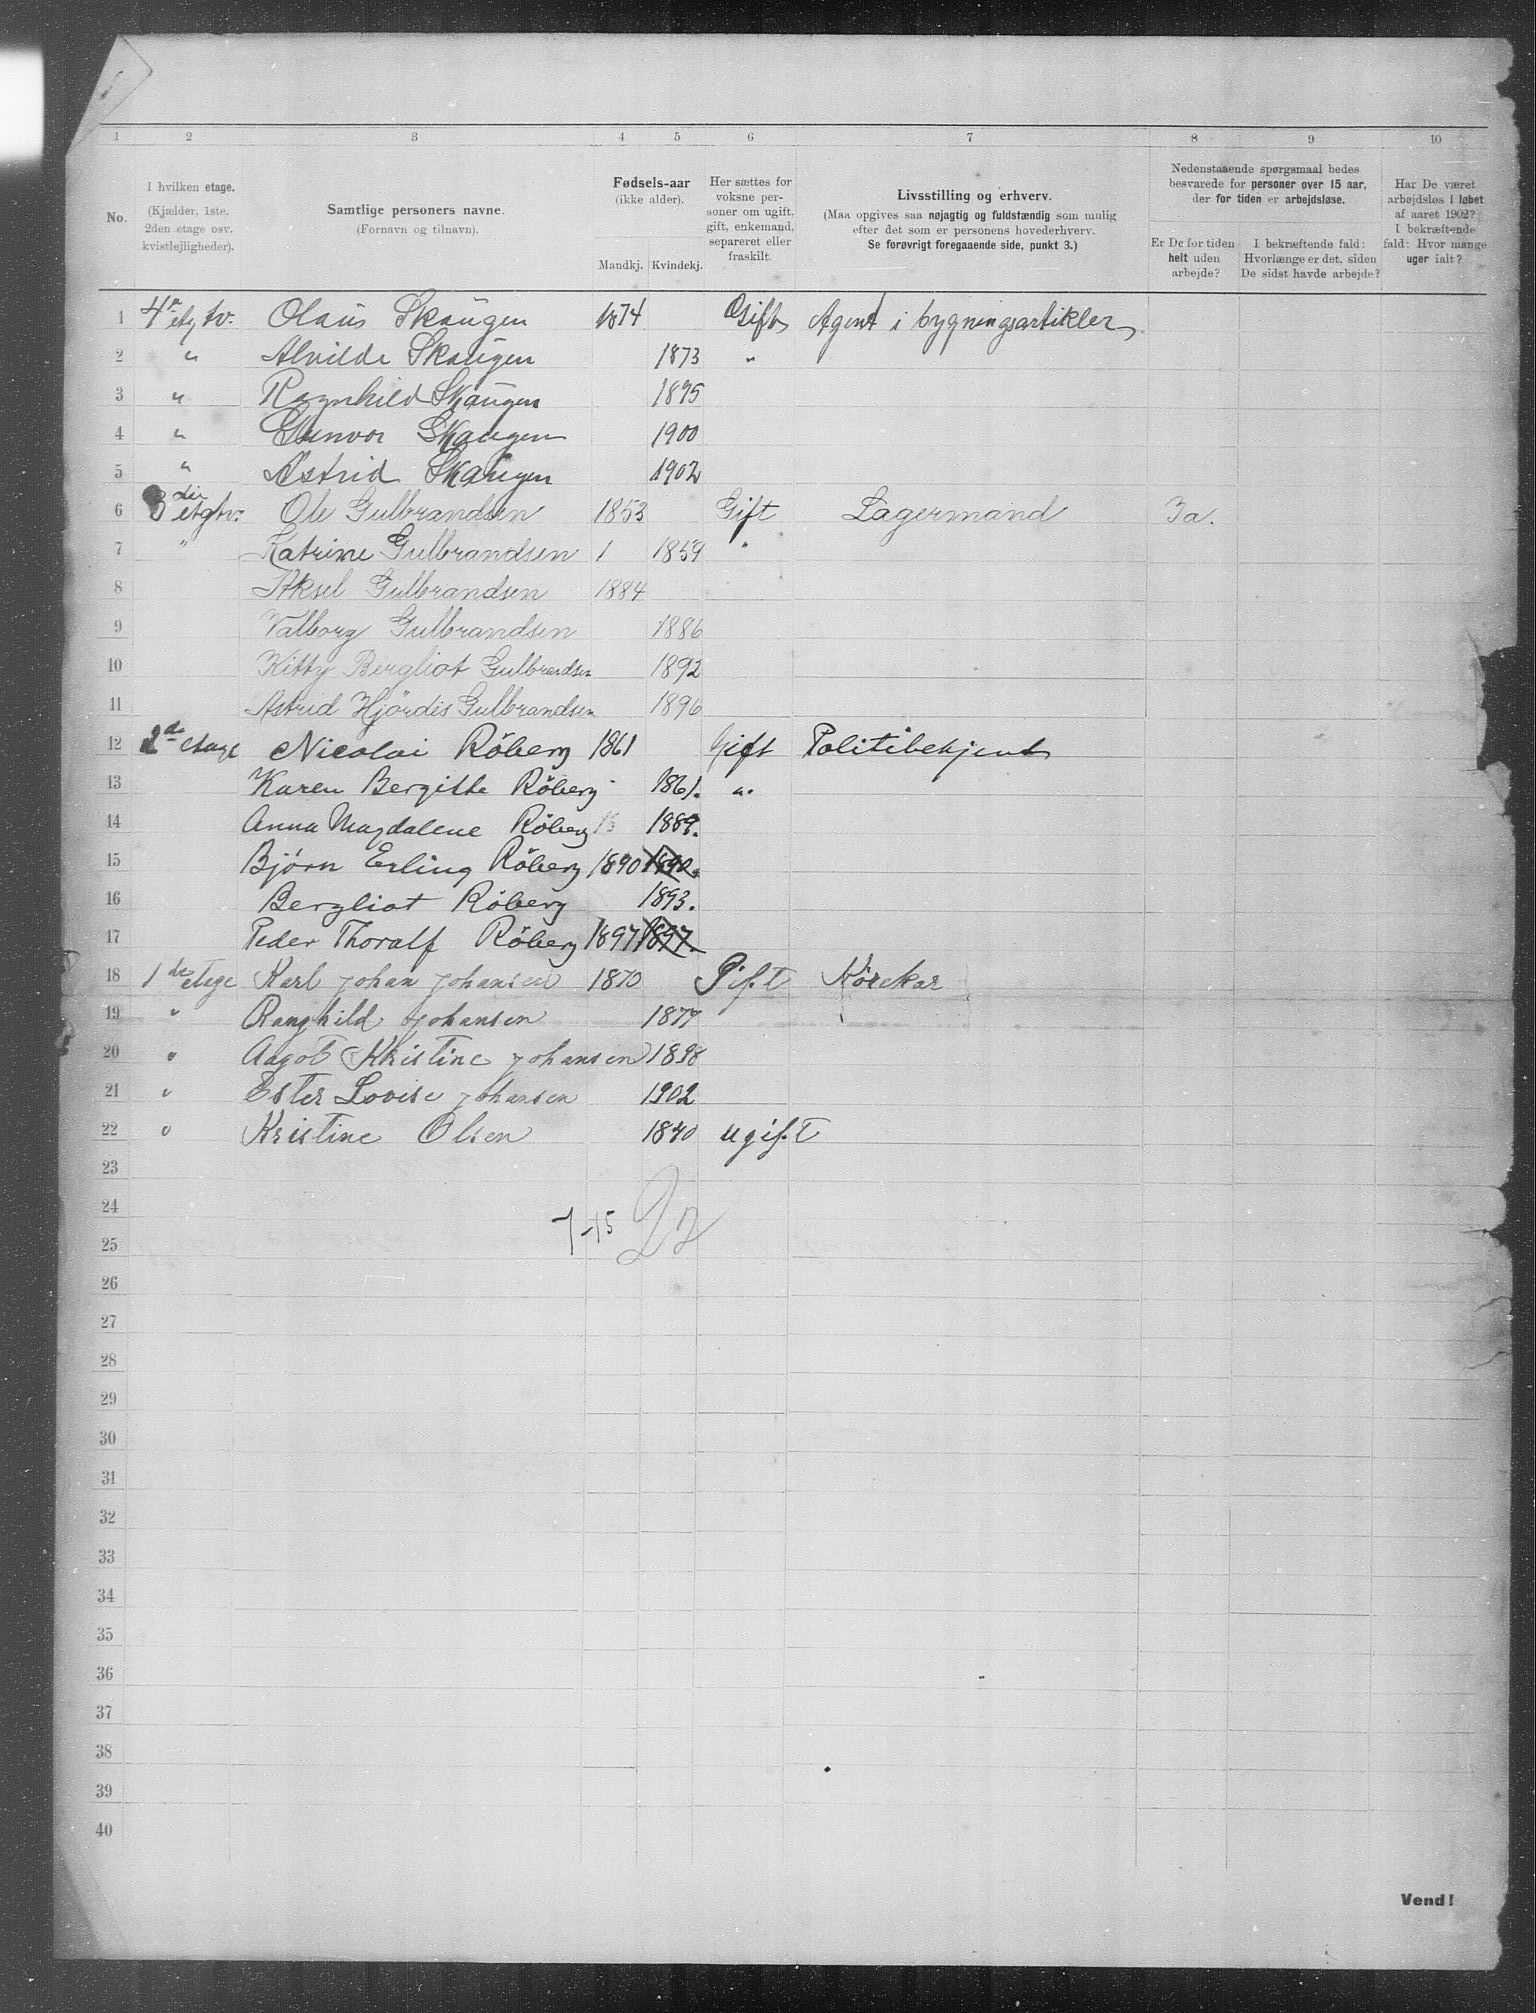 1 2 3 4 5 6 7 8 9 10
No.
I hvilken etage.
(Kjælder, 1ste.
2den etage osv.
kvistlejligheder).
Samtlige personers navne.
(Fornavn og tilnavn).
Fødsels-aar
(ikke alder).
Mandkj. Kvindekj.
Her sættes for
voksne per-
soner om ugift,
gift, enkemand,
separeret eller
fraskilt.
Livsstilling og erhverv.
(Maa opgives saa nøjagtig og fuldstændig som mulig
efter det som er personens hovederhverv.
Se forøvrigt foregaaende side, punkt 3.)
Nedenstaaende spørgsmaal bedes
besvarede for personer over 15 aar,
der for tiden er arbejdsløse.
Er De for tiden
helt uden
arbejde?
I bekræftende fald:
Hvorlænge er det, siden
De sidst havde arbejde?
Har De været
arbejdsløs i løbet
af aaret 1902?
I bekræftende
fald: Hvor mange
uger ialt?
1 4 etg tv. Olaus Skaugen 1874 Gift Agent i bygningsartikler
2 " Alvilde Skaugen 1873 "
3 " Ragnhild Skaugen 1895
4 " Gunvor Skaugen 1900
5 " Astrid Skaugen 1902
6 3die etg tv. Ole Gulbrandsen 1853 Gift Lagermand Ja.
7 " Katrine Gulbrandsen 1 1859 "
8 Aksel Gulbrandsen 1884
9 Valborg Gulbrandsen 1886
10 Kitty Bergliot Gulbrandsen 1892
11 Astrid Hjördis Gulbrandsen 1896
12 2de etage Nicolai Röberg 1861 Gift Politibetjent
13 Karen Bergitte Röberg 1861. "
14 Anna Magdalene Röberg 18 1889.
15 Bjørn Erling Röberg 1890 1890.
16 Bergliot Röberg 1893.
17 Peder Thoralf Röberg 1897 1897.
18 1ste etage Karl Johan Johansen 1870 Gift Körekar
19 " Ranghild Johansen 1877
20 " Aagot Kristine Johansen 1898
21 " Ester Lovise Johansen 1902
22 " Kristine Olsen 1840 ugift
23
24
7-15 22
25
26
27
28
29
30
31
32
33
34
35
36
37
38
39
40
Vend!